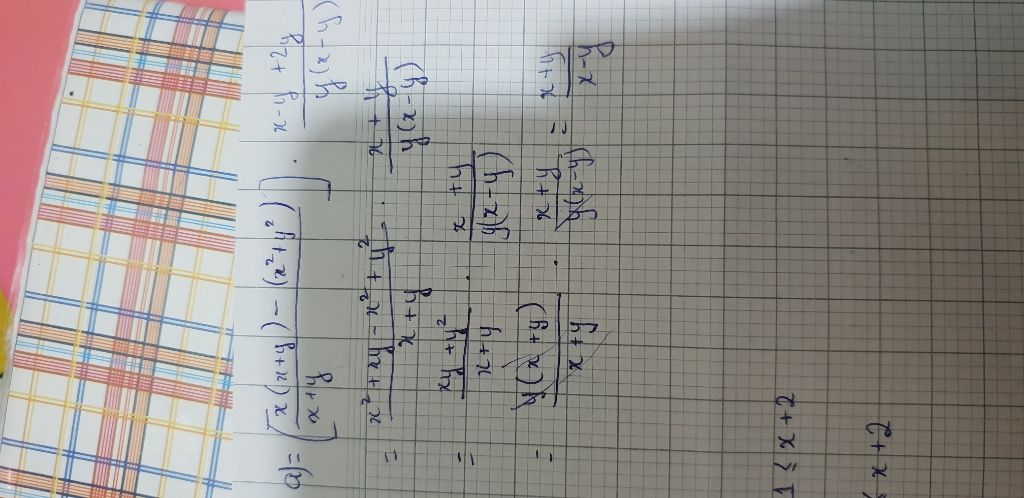 a) = [(x(x+y) - (x²+y²))/(x+y)] · (x-y+2y)/(y(x-y))
= (x²+xy-x²+y²)/(x+y) · (x+y)/(y(x-y))
= (xy+y²)/(x+y) · (x+y)/(y(x-y))
= (y(x+y))/(x+y) · (x+y)/(y(x-y)) = (x+y)/(x-y)
1 ≤ x+2
≤ x+2